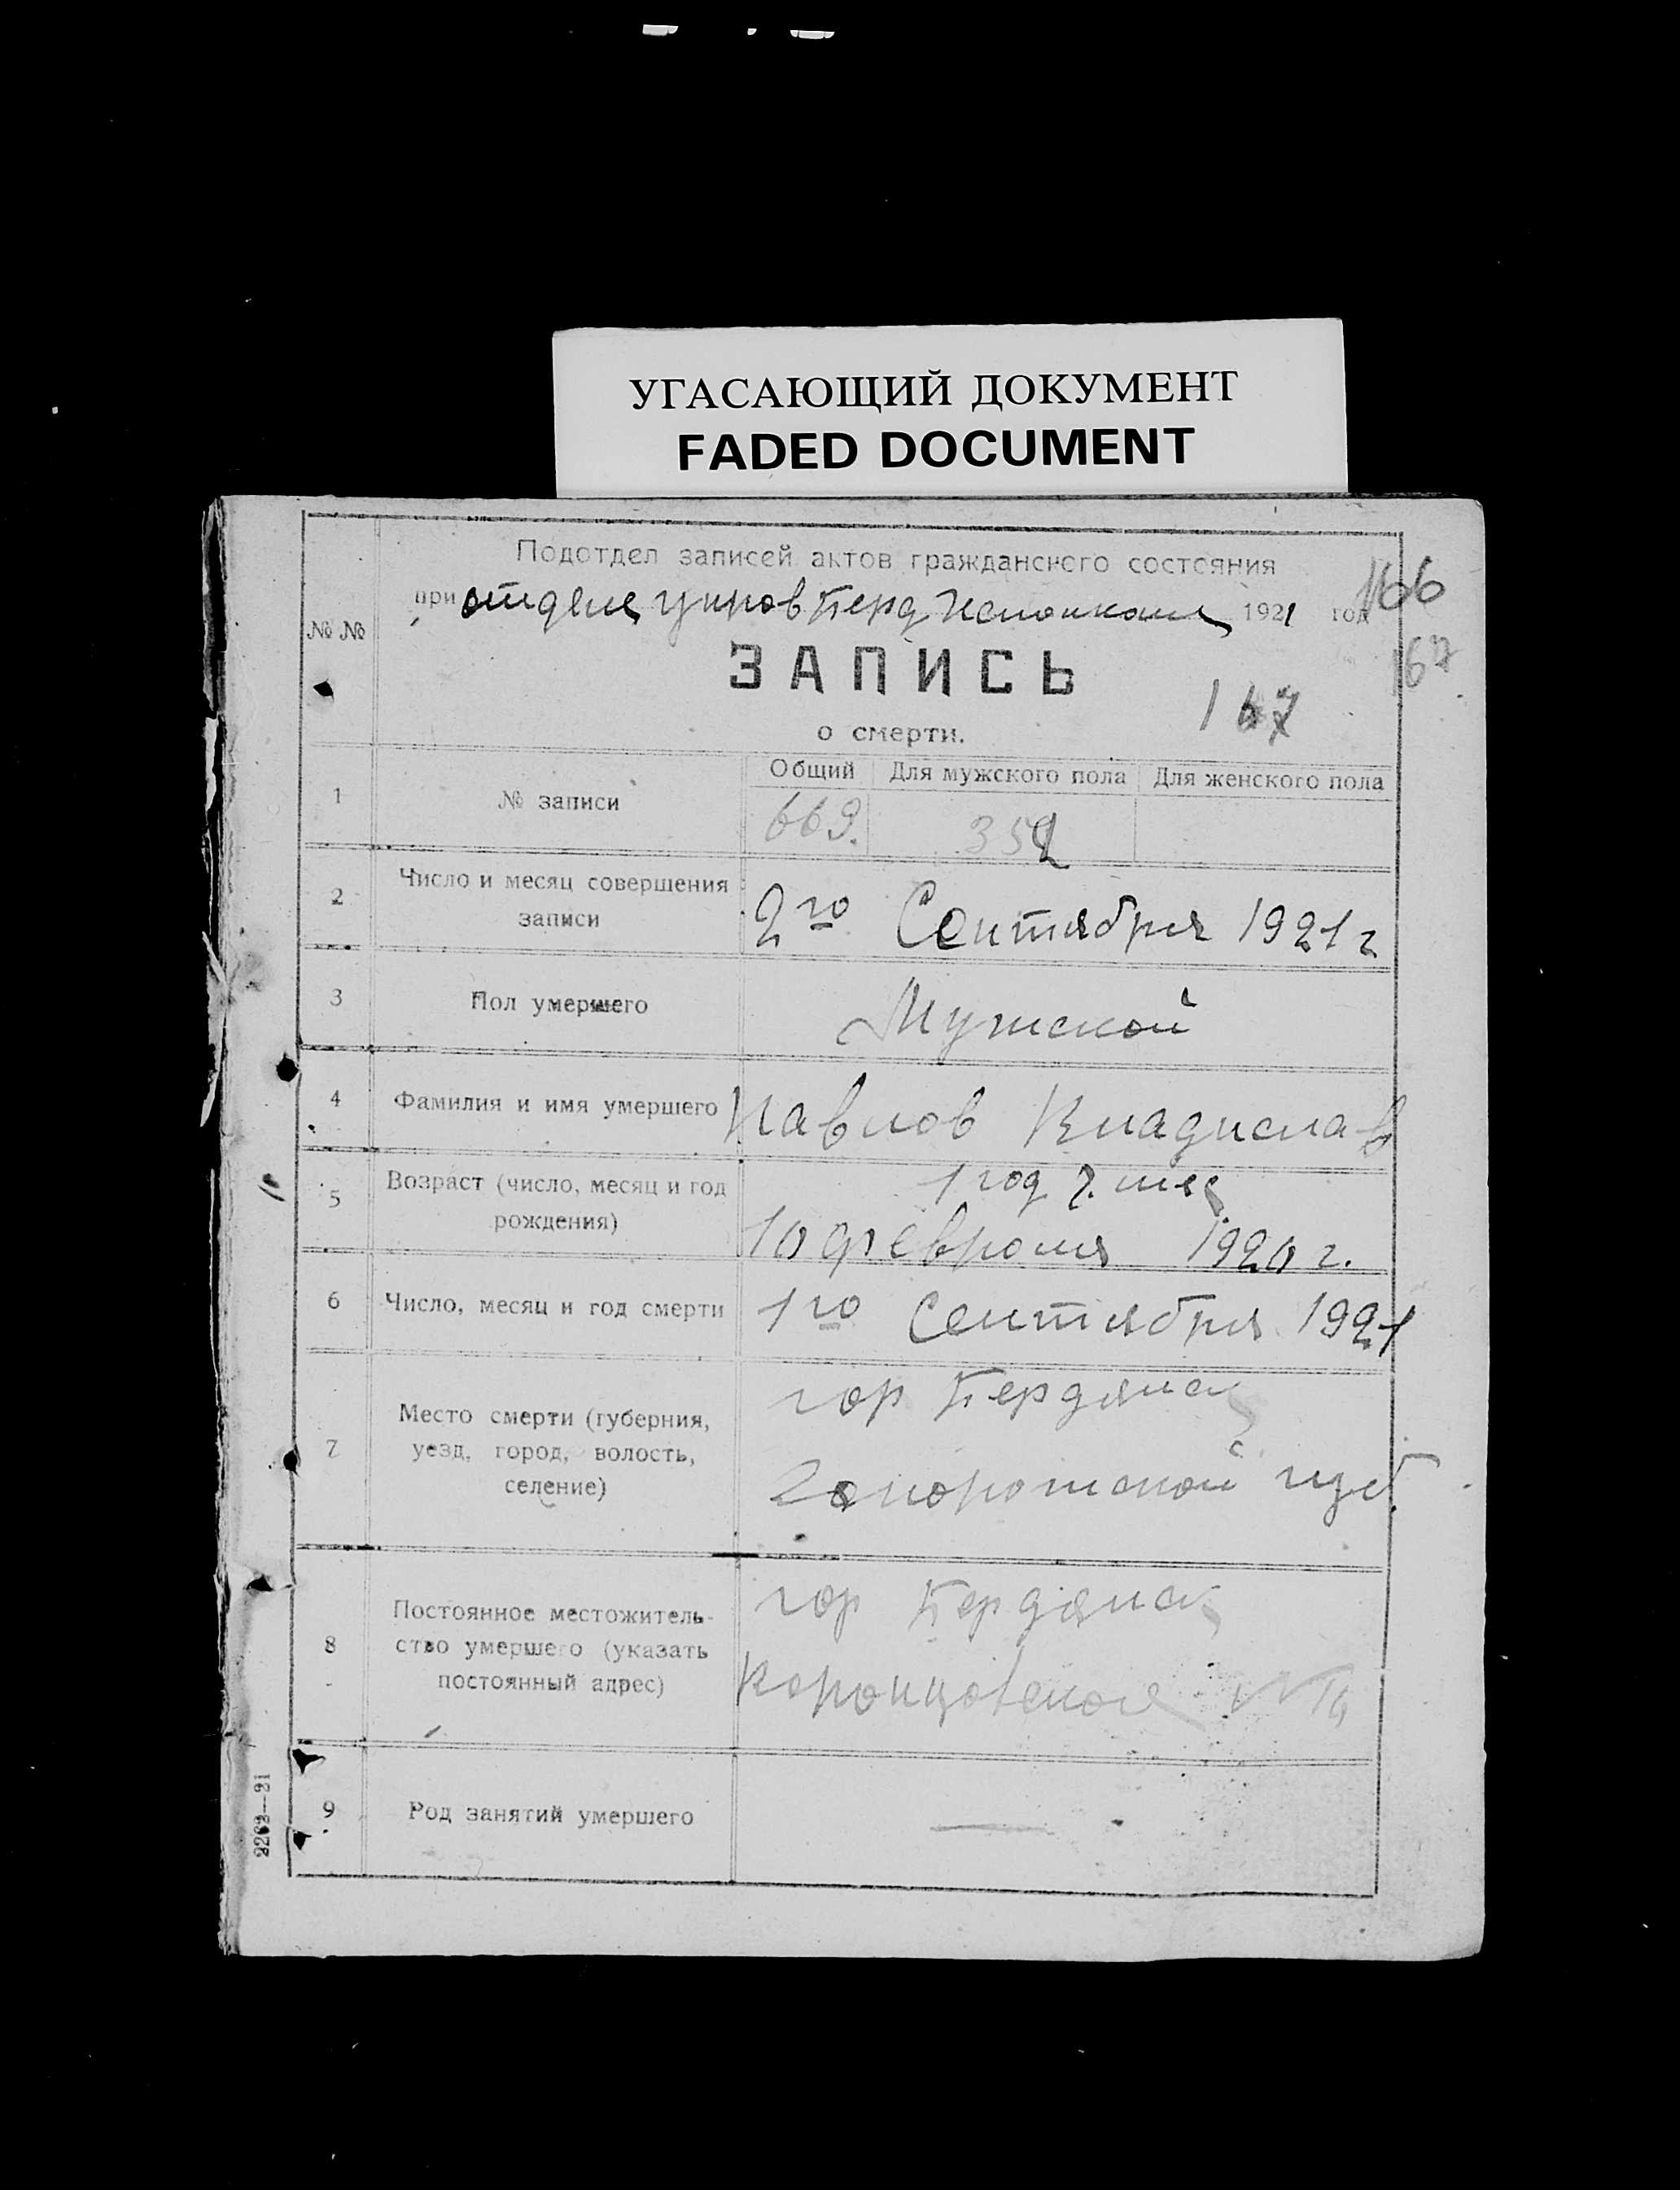 УГАСАЮЩИЙ ДОКУМЕНТ
FADED DOCUMENT
Подотдел записей актов гражданского состояния
при отделе управ Берд Исполкома 1921 год
166
167
№ №
ЗАПИСЬ
167
о смерти.
Общий Для мужского пола Для женского пола
1 № записи 669. 352
2 Число и месяц совершения
записи
2го Сентября 1921 г
3 Пол умершего Мужской
4 Фамилия и имя умершего Павлов Владислав
5 Возраст (число, месяц и год
рождения)
1 год 7. мес
10 февраля 1920 г.
6 Число, месяц и год смерти 1го Сентября 1921
7 Место смерти (губерния,
уезд, город, волость,
селение)
гор Бердянск
Запорожской губ
8 Постоянное местожитель-
ство умершего (указать
постоянный адрес)
гор Бердянск
Воронцовская №
9 Род занятий умершего
2263—21